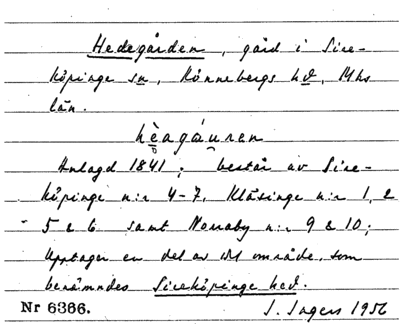 Hedegården, gård i Sire-
köpinge sn, Rönnebergs hd, Mhs
län.
hèagáuren
Anlagd 1841; består av Sire-
köpinge n:r 4-7, Klåsinge n:r 1, 2
5 & 6 samt Norraby n:r 9 & 10;
Upptager en del av det område, som
benämndes Sireköpinge hed.
Nr 6366.
I. Ingers 1956